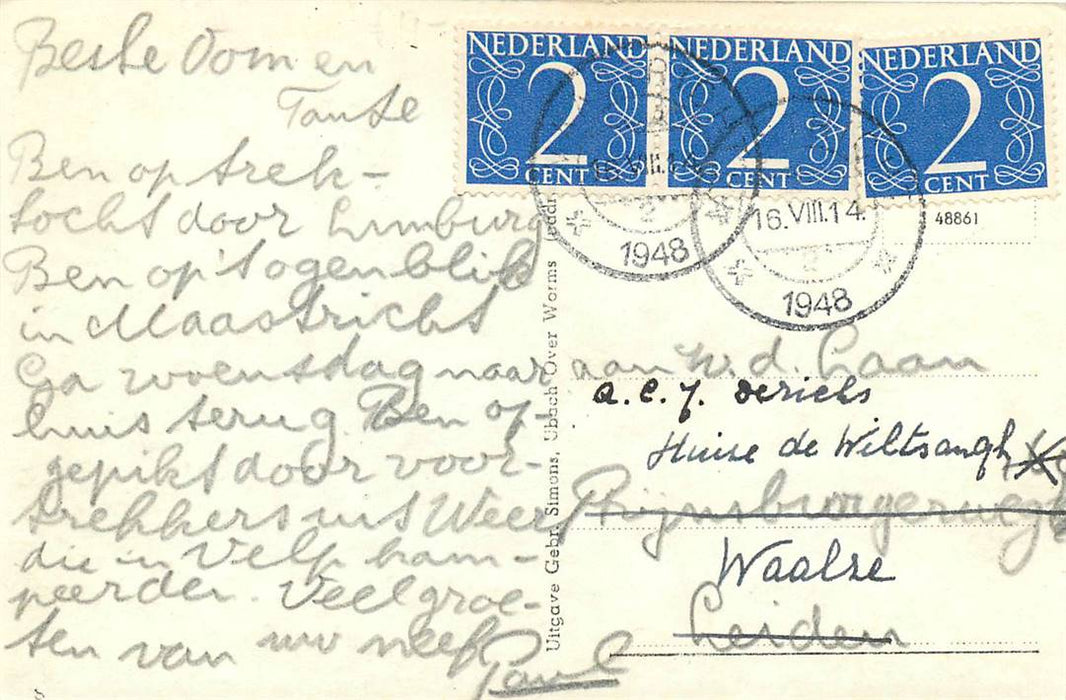 Beste Oom en
Tante
Ben op trek-
tocht door Limburg
Ben op 't ogenblik
in Maastricht
Ga woensdag naar
huis terug. Ben op-
gepikt door voor-
trekkers uit Weert
die in Velp kam-
peerden. Veel groe-
ten van uw neef
Paul
Uitgave Gebr. Simons, Ubach Over Worms
NEDERLAND
2
CENT
NEDERLAND
2
CENT
NEDERLAND
2
CENT
1948
16.VIII.14.
1948
48861
aan W. d. Laan
a.c.j. derichs
Huize de Wiltsangh
Rhijnsburgerweg
Waalre
Leiden